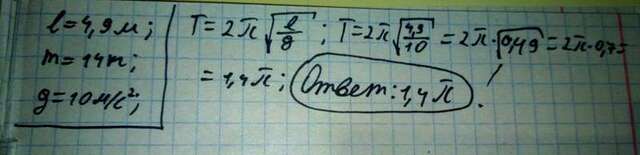 l=4,9м;
m=14т;
g=10м/с²;
T=2π√(l/g); T=2π√(4,9/10)=2π·√0,49=2π·0,7=
=1,4π; Ответ: 1,4π.